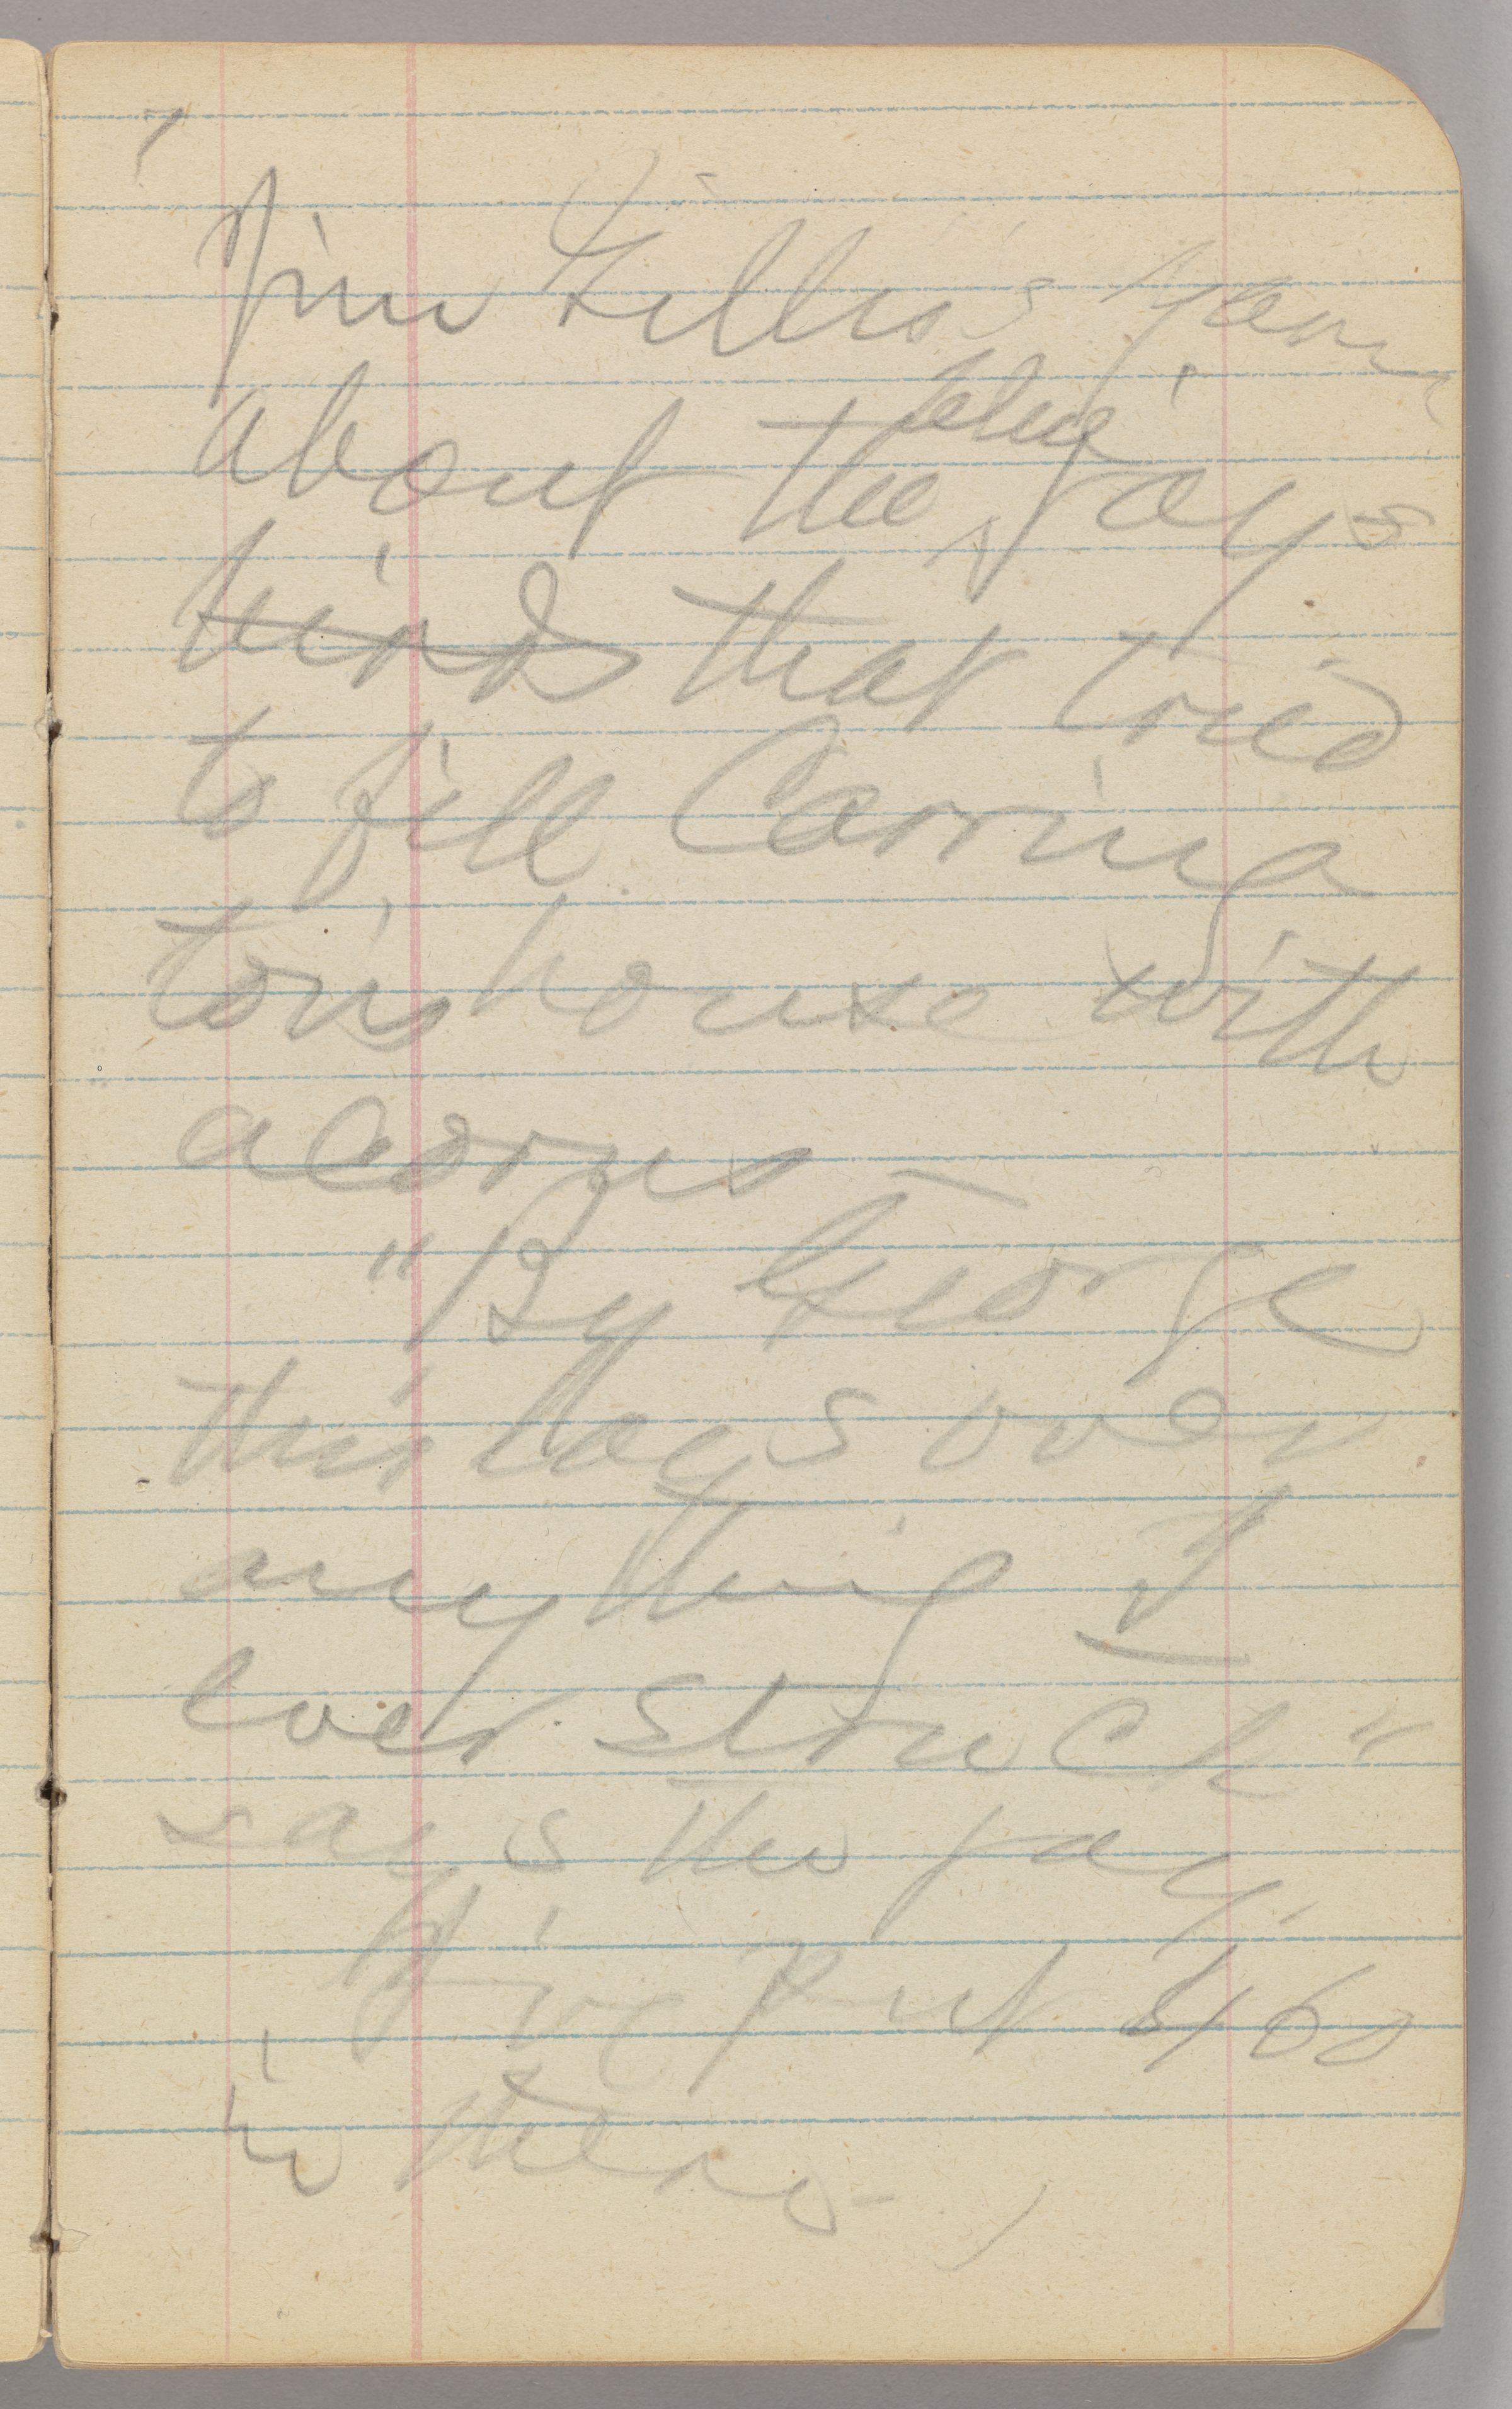 Jim Gillis's yarn
about the blue jays
bird that tried
to fill Carring
ton's house with
acorns —
"By George
this lays over
anything I
ever struck"
says the jay,
I've put 460
in there —